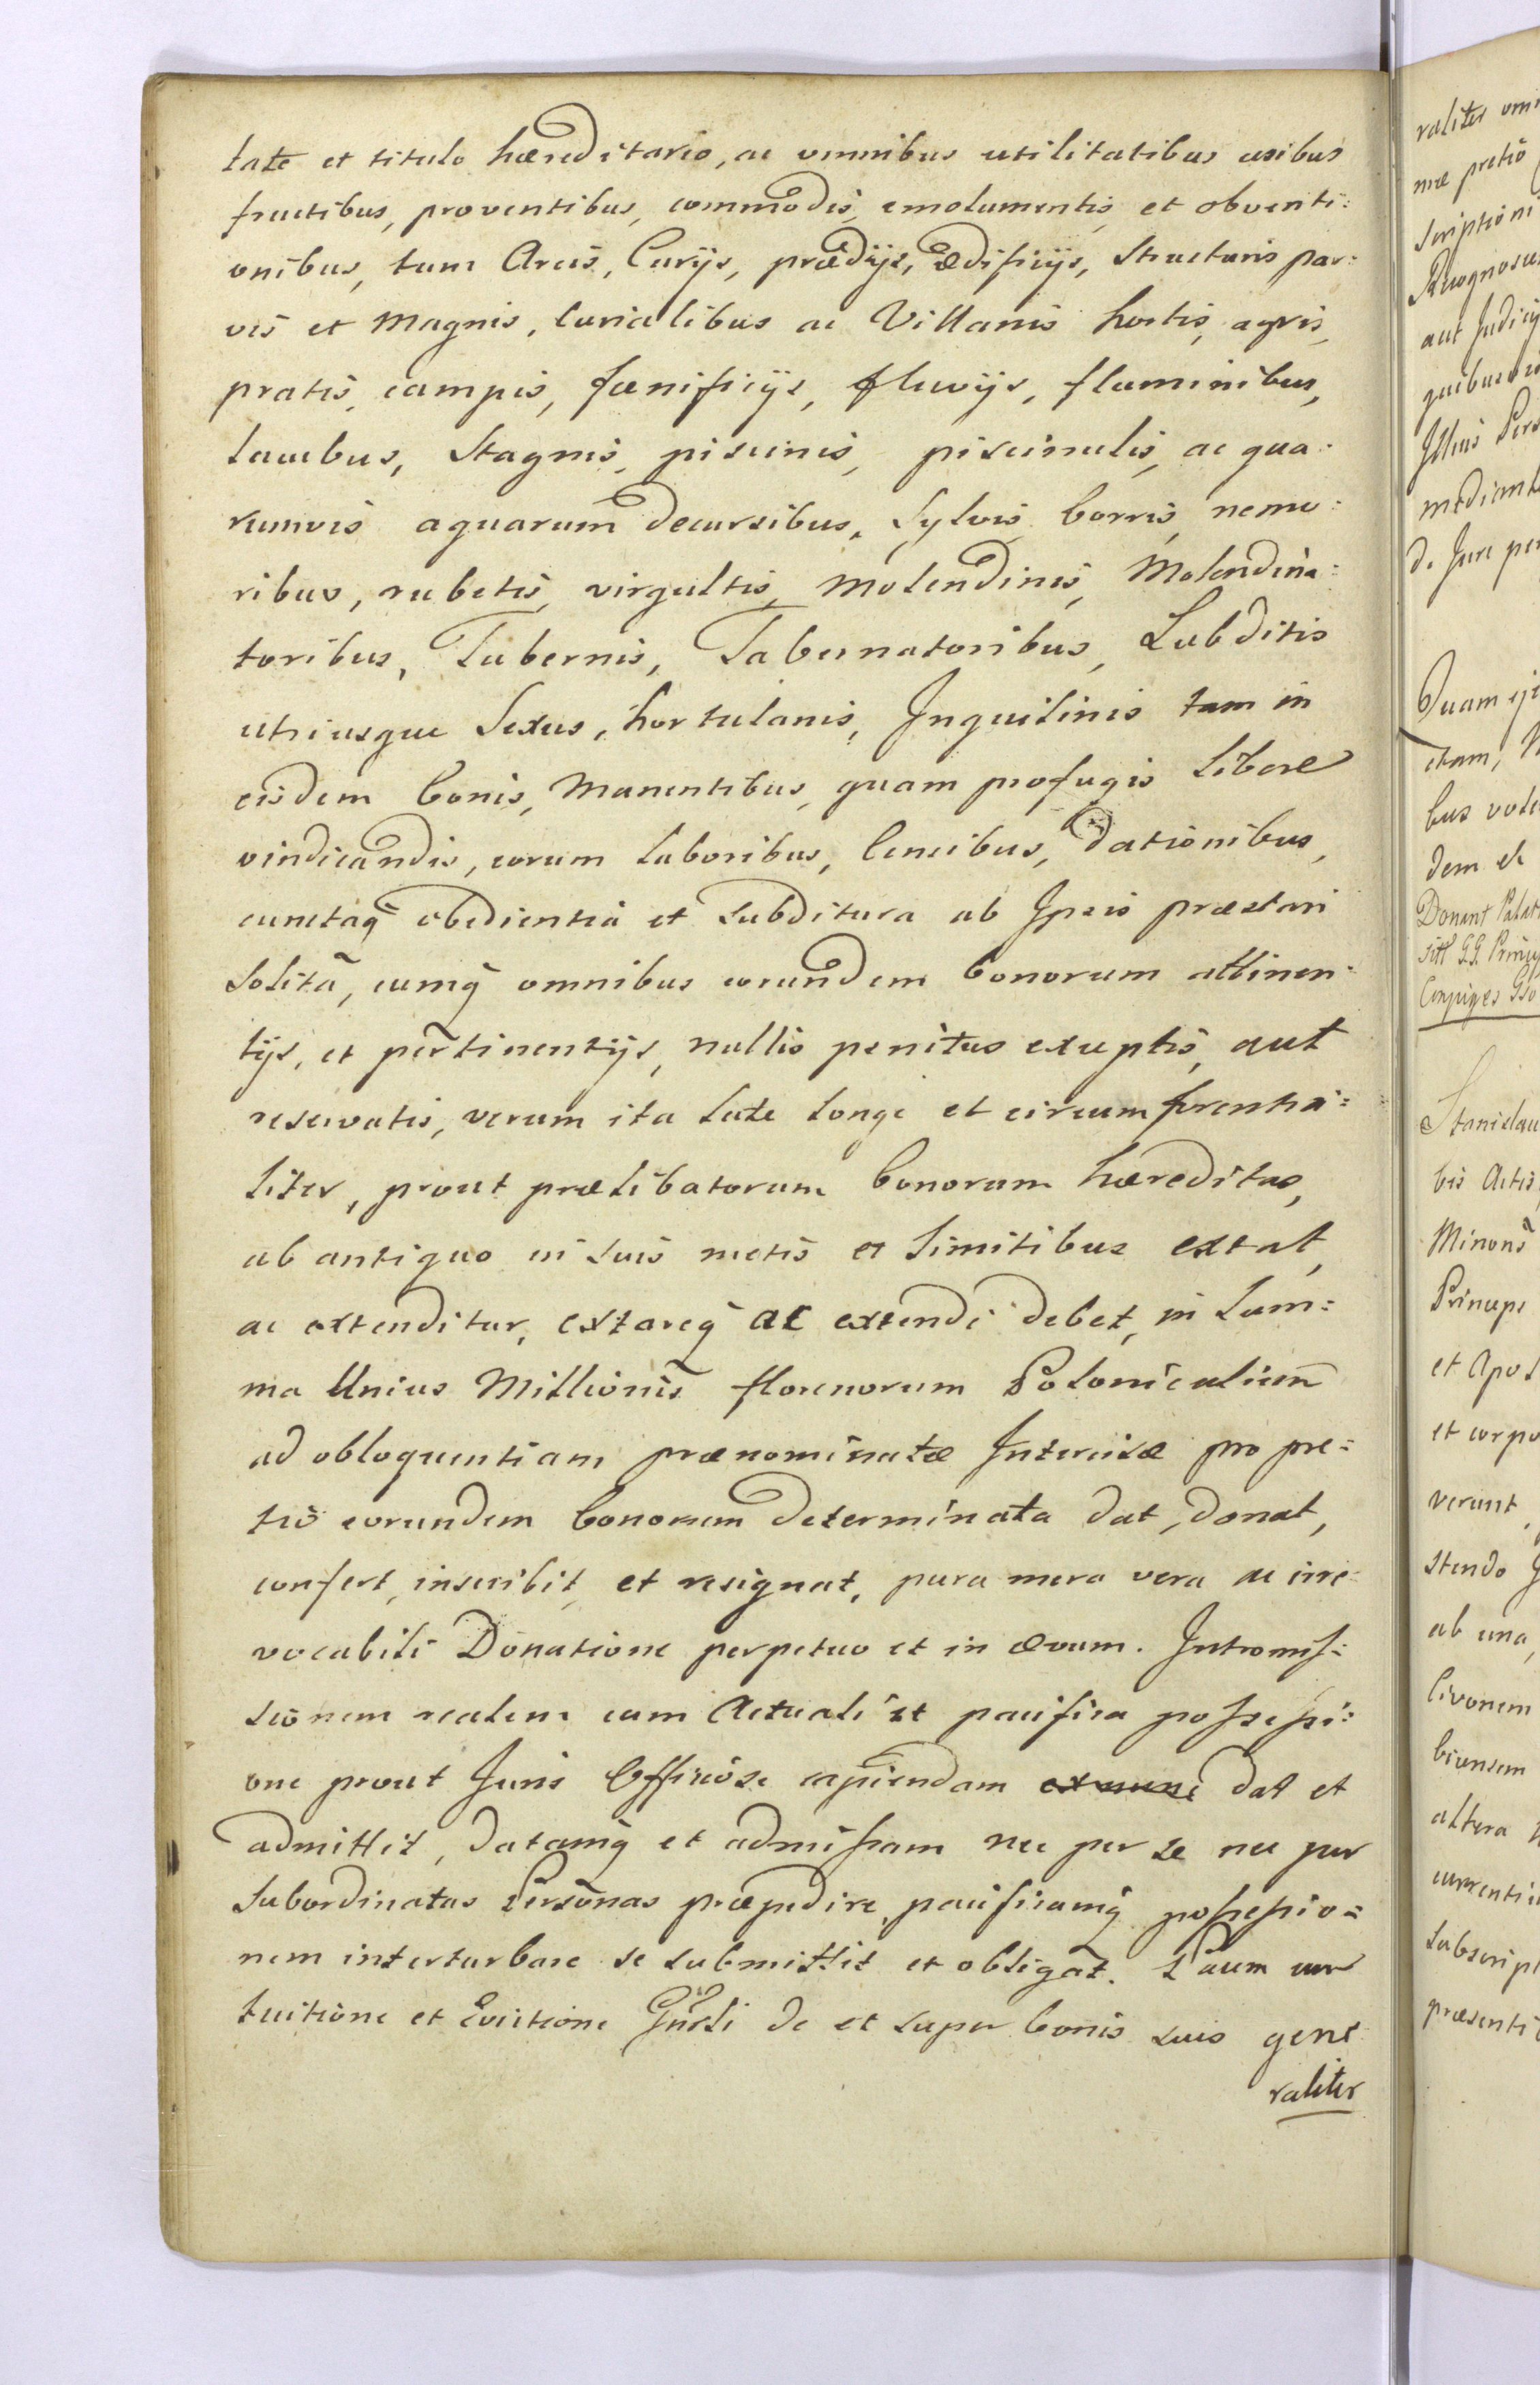 tate et titulo hæreditario, ac omnibus utilitatibus usibus
fructibus, proventibus, commodis, emolumentis, et obventi:
onibus, tum Areis, Curijs, prædijs, ædificijs, Structuris par:
vis et Magnis, Curialibus ac Villanis hortis, agris,
pratis, campis, fœnificijs, fluvijs, fluminibus,
lacubus, Stagnis, piscinis, piscinulis, ac qua:
rumvis aquarum decursibus, Sylvis, borris, nemo:
ribus, rubetis, virgultis, Molendinis, Molendina:
toribus, Tabernis, Tabernatoribus, Subditis
utriusque Sexus, hortulanis, Inquilinis tam in
eisdem bonis, Manentibus, quam profugis libere
vindicandis, eorum laboribus, Censibus, dationibus,
cunctaq̃ obedientia et Subditura ab Ipsis præstari
Solita, cumq̃ omnibus eorundem bonorum attinen:
tijs, et pertinentijs, nullis penitus exceptis, aut
reservatis, verum ita late longe et circumfrentia:
liter, prout prælibatorum bonorum hæreditas,
ab antiquo in suis metis et limitibus extat,
ac extenditur, extareq̃ ac extendi debet, in Sum:
ma Unius Millionis florenorum Polonicalium
ad obloquentiam prænominatæ Intercisæ pro pre:
tio eorundem bonorum determinata dat, donat,
confert, inscribit, et resignat, pura mera vera ac irre:
vocabili Donatione perpetuo et in ævum. Intromis:
sionem realem cum Actuali et pacifica possessi:
one prout Juris Officiose capiendam ex nunc dat et
admittit, datamq̃ et admissam nec per se nec per
Subordinatas Personas præpedire, pacificamq̃ possessio=
nem interturbare se submittit et obligat.
tuitione et Evictione Gnrli de et super bonis suis gene
raliter

raliter
mæ pretio
Scriptioni
Recognoscen
aut Judicij
quibusvis
Illius Pers
mediante
d. Jure per
Quam
etam,
bus vole
dem et
Donant Palat
Stanislau
bis Actis,
Minons
Princeps
et Apos
et corpo
verunt,
stendo
ab una,
Livonem
biensem
altera
currentis
subscript
præsenti